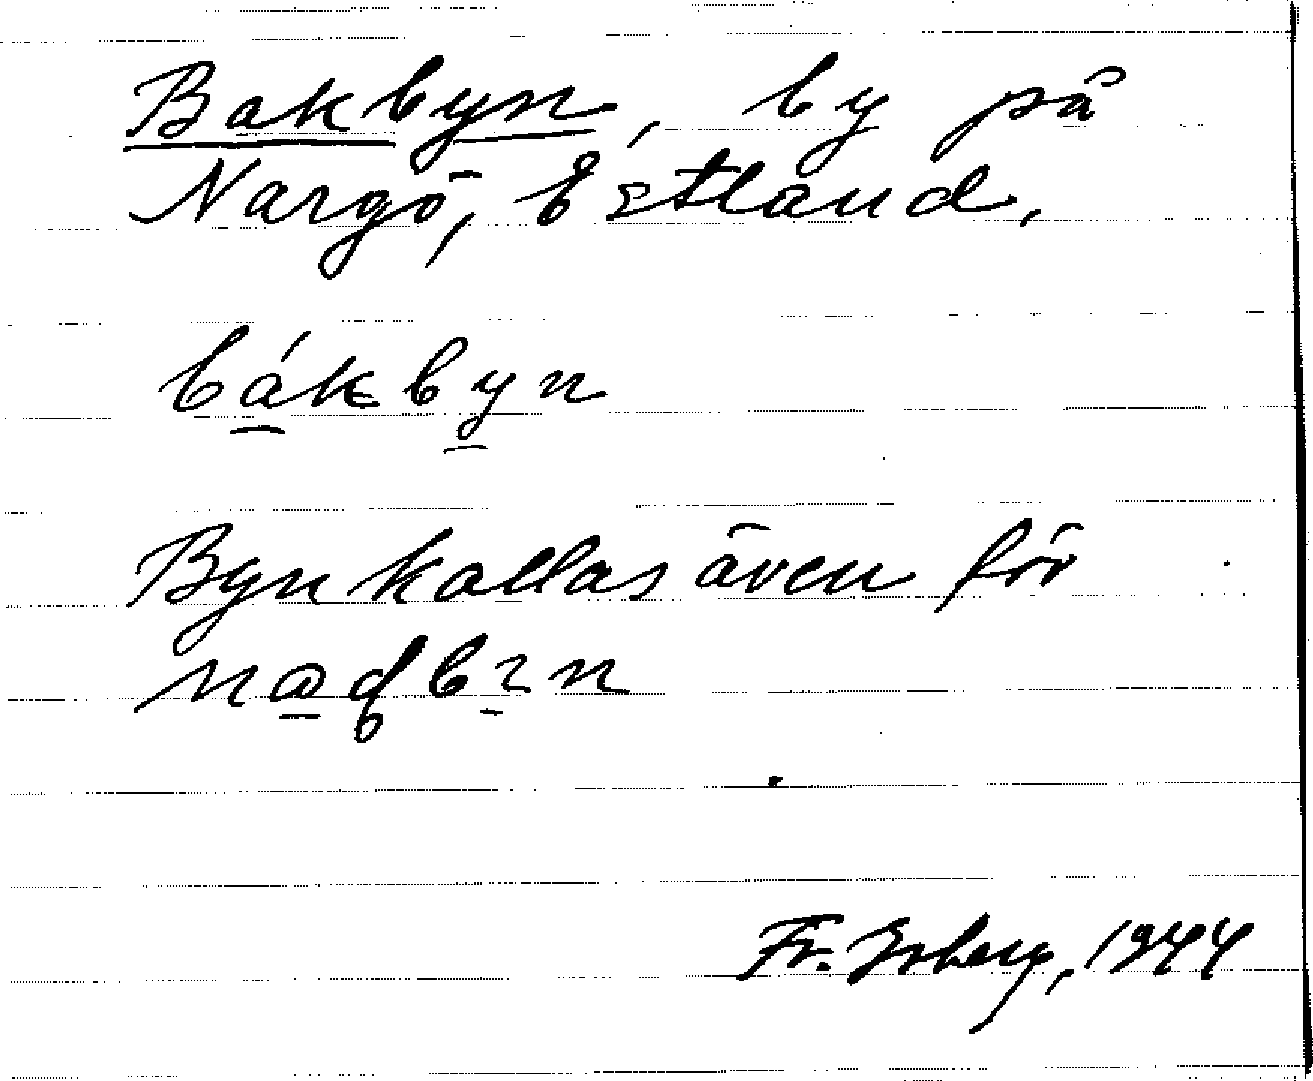 Bakbyn, by på
Nargö, Estland.
bákbyn
Byn kallas även för
Fr. 1944